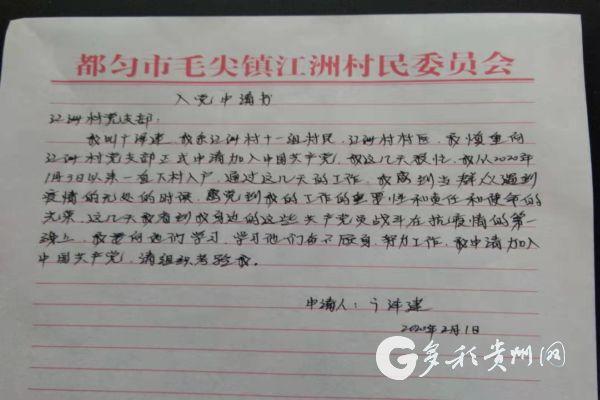 都匀市毛尖镇江洲村民委员会
入党申请书
江洲村党支部:
我叫 泽建,我系江洲村十一组村民,江洲村村医,我慎重向
江洲村党支部正式申请加入中国共产党,我这几天 ,我从2020年
1月3日以来一直下村入户,通过这几天的工作,我感到当群众遇到
疫情 的时候,感觉到我的工作的重要性和责任和使命的
光荣,这几天我看到我身边的这些共产党员战斗在抗疫情的第一
线上,我要向他们学习,学习他们奋不顾身,努力工作,我申请加入
中国共产党,请组织考验我。
申请人: 泽建
2020年2月1日
多彩贵州网